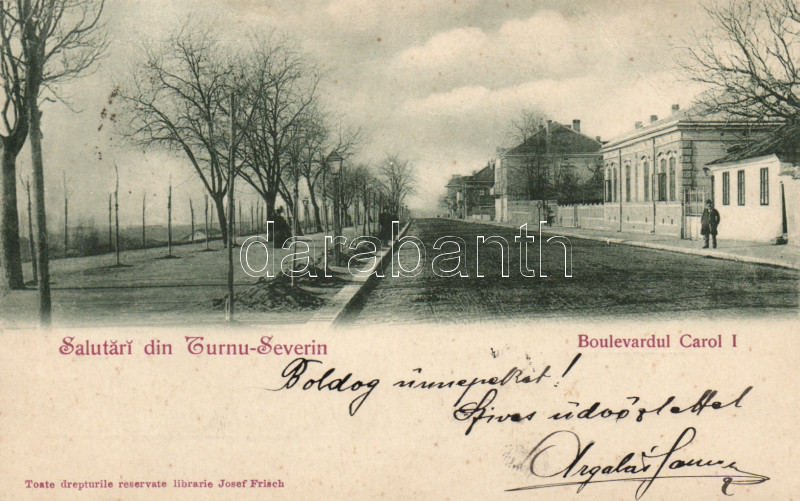 darabanth
Salutărĭ din Turnu-Severin
Boulevardul Carol I
Boldog ünnepeket!
Szives üdvözlettel
Toate drepturile reservate librarie Josef Frisch